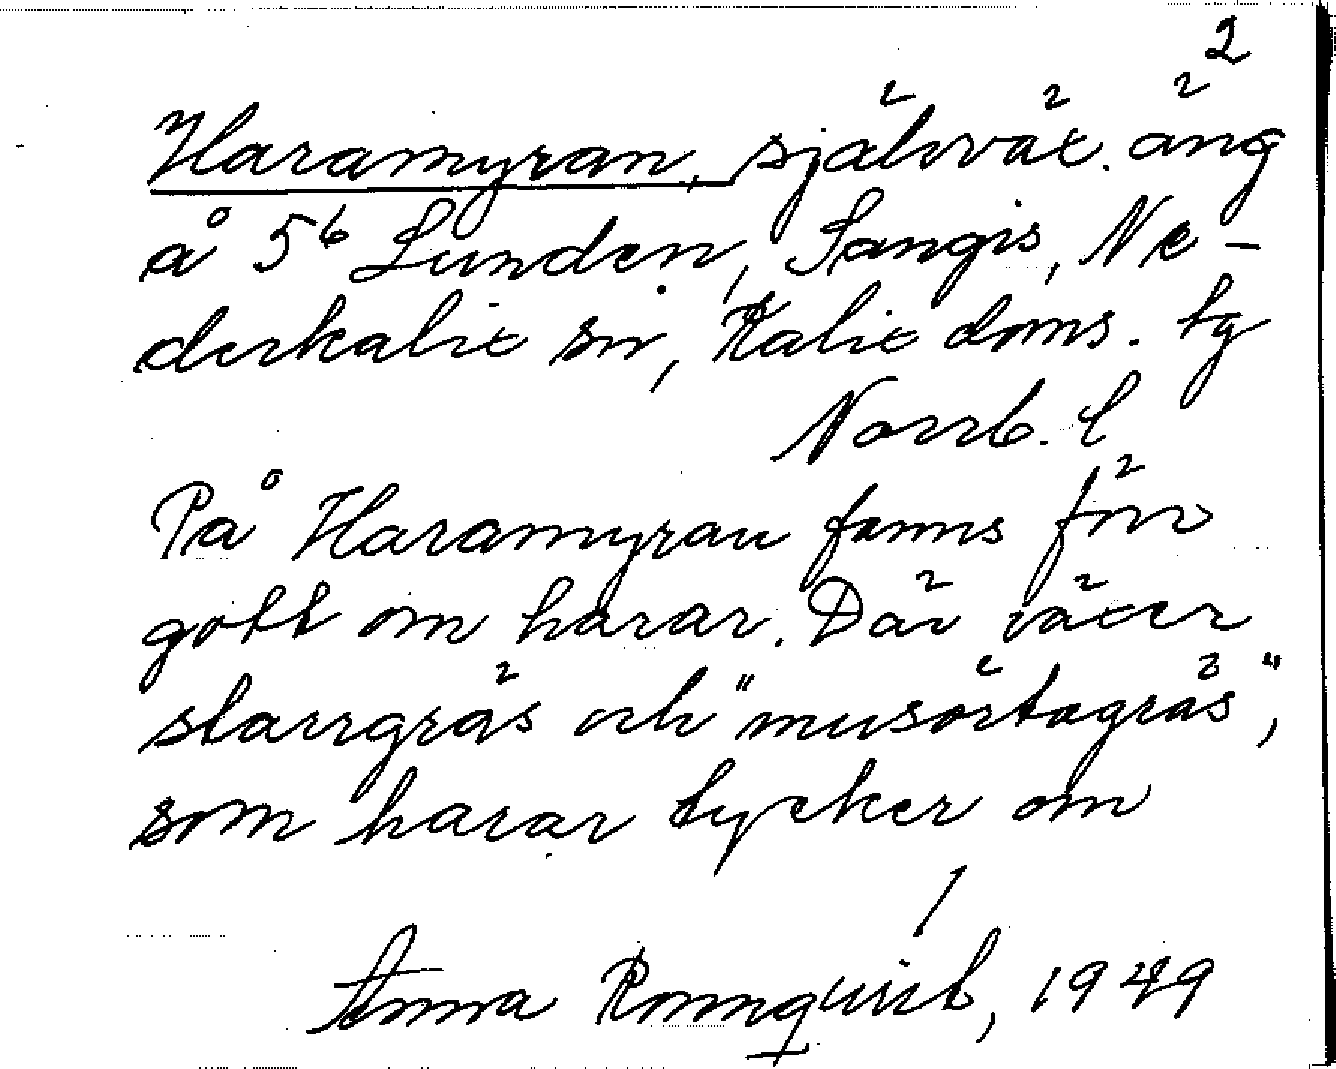 2
Haramyran, självväx. äng
å 5⁶ Lunden, Sangis, Ne-
derkalix sn, Kalix doms. tg
Norrb. l
På Haramyran fanns förr
gott om harar. Där växer
starrgräs och "musörtagräs",
som harar tycker om
Anna Rönnqvist, 1949